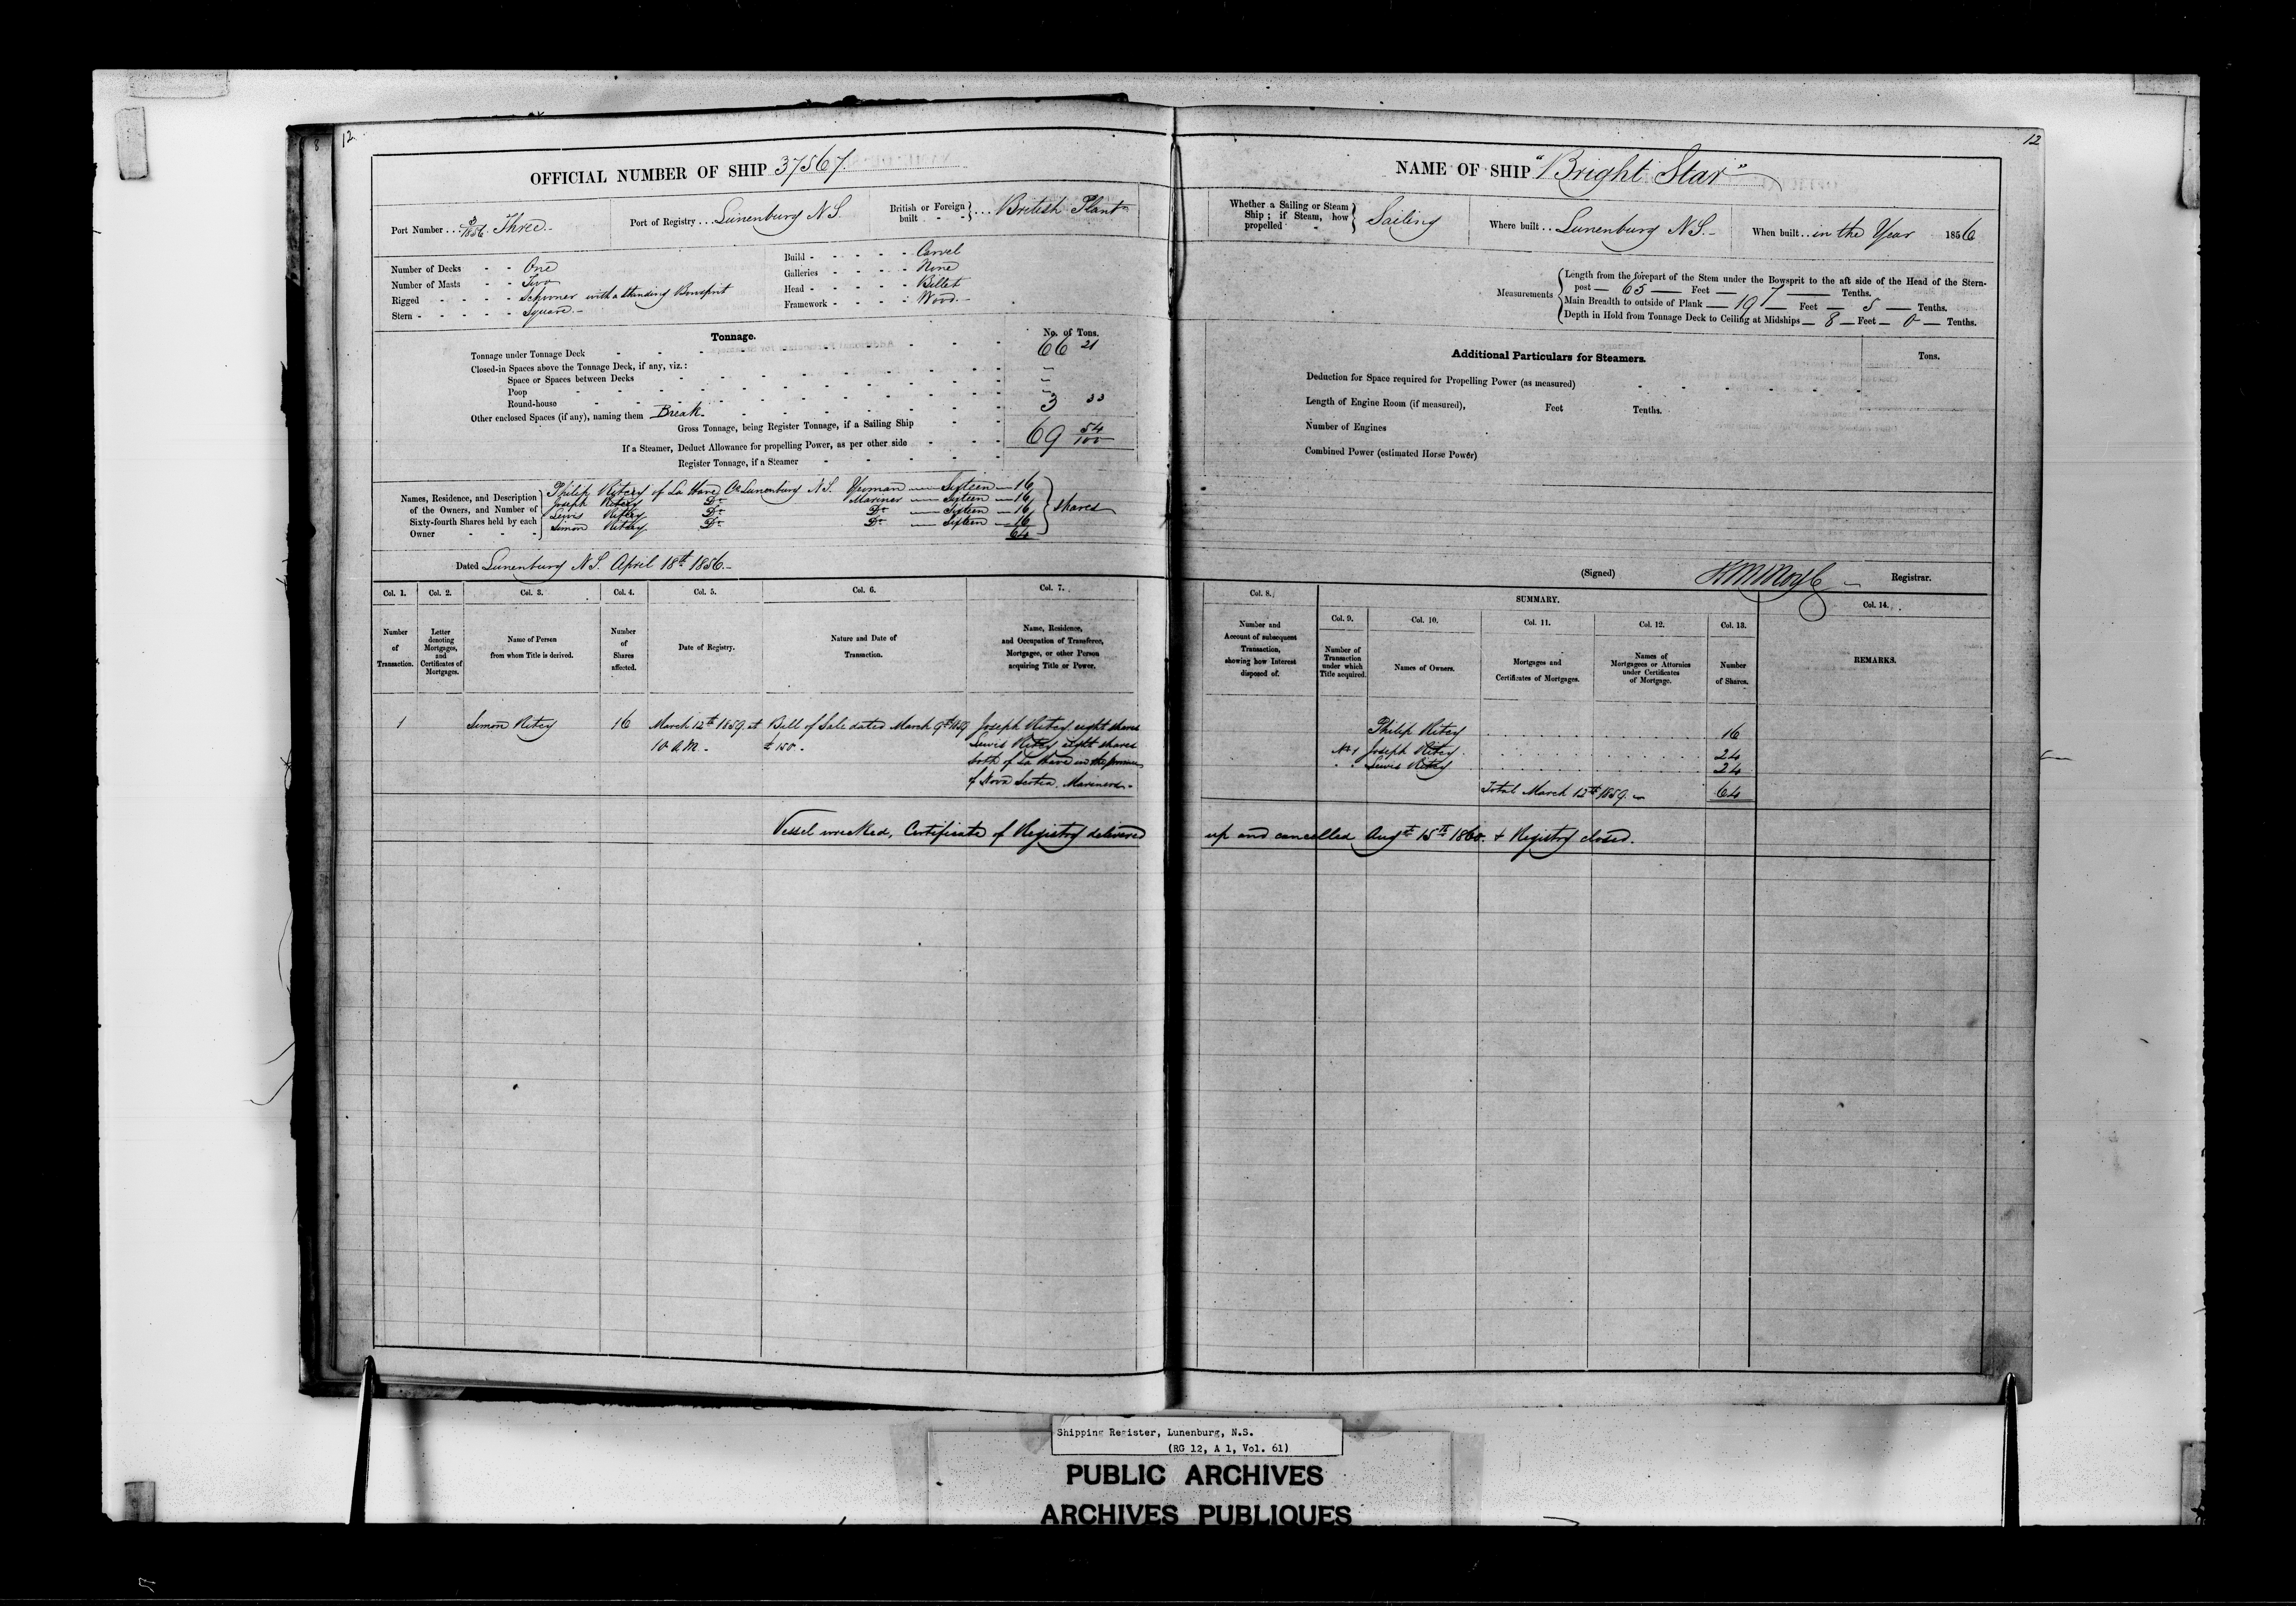 12
OFFICIAL NUMBER OF SHIP 37567.
Port Number ... 3/1856. Three.-
Port of Registry ... Lunenburg N.S.
British or Foreign built ... British Plant
Number of Decks - - One
Number of Masts - - Two
Rigged - - - - Schooner with a standing Bowsprit
Stern - - - - - Square.-
Build - - - - - Carvel
Galleries - - - - None
Head - - - - - Billet
Framework - - - - Wood.-
Tonnage.
No. of Tons.
Tonnage under Tonnage Deck - - - 66 21
Closed-in Spaces above the Tonnage Deck, if any, viz.:
Space or Spaces between Decks
Poop
Round-house
Other enclosed Spaces (if any), naming them Break. 3 33
Gross Tonnage, being Register Tonnage, if a Sailing Ship 69 54/100
If a Steamer, Deduct Allowance for propelling Power, as per other side
Register Tonnage, if a Steamer
Names, Residence, and Description of the Owners, and Number of Sixty-fourth Shares held by each Owner
Philip Ritcey of La Have Co Lunenburg N.S. Yeoman — Sixteen — 16
Joseph Ritcey Do Mariner — Sixteen — 16
Lewis Ritcey Do Do — Sixteen — 16
Simon Ritcey Do Do — Sixteen — 16
64
Shares
Dated Lunenburg N.S. April 18th 1856.-
Col. 1. Col. 2. Col. 3. Col. 4. Col. 5. Col. 6. Col. 7.
Number of Transaction.
Letter denoting Mortgages, and Certificates of Mortgages.
Name of Person from whom Title is derived.
Number of Shares affected.
Date of Registry.
Nature and Date of Transaction.
Name, Residence, and Occupation of Transferee, Mortgagee, or other Person acquiring Title or Power.
1 Simon Ritcey 16 March 12th 1859. at Bill of Sale dated March 9th 1859 Joseph Ritcey eight shares
10 A.M. - £150. - Lewis Ritcey eight shares
both of La Have in the province
of Nova Scotia. Mariners.-
Vessel wrecked, Certificate of Registry delivered
12
NAME OF SHIP "Bright Star"
Whether a Sailing or Steam Ship; if Steam, how propelled Sailing
Where built .. Lunenburg N.S.-
When built .. in the Year 1856
Measurements
Length from the forepart of the Stem under the Bowsprit to the aft side of the Head of the Stern-
post — 65 — Feet — 7 — Tenths.
Main Breadth to outside of Plank — 19 — Feet — 5 — Tenths.
Depth in Hold from Tonnage Deck to Ceiling at Midships — 8 — Feet — 0 — Tenths.
Additional Particulars for Steamers.
Tons.
Deduction for Space required for Propelling Power (as measured)
Length of Engine Room (if measured), Feet Tenths.
Number of Engines
Combined Power (estimated Horse Power)
(Signed) Registrar.
Col. 8. SUMMARY. Col. 14.
Col. 9. Col. 10. Col. 11. Col. 12. Col. 13.
Number and Account of subsequent Transaction, showing how Interest disposed of.
Number of Transaction under which Title acquired.
Names of Owners.
Mortgages and Certificates of Mortgages.
Names of Mortgagees or Attornies under Certificates of Mortgage.
Number of Shares.
REMARKS.
Philip Ritcey 16
No 1 Joseph Ritcey 24
" Lewis Ritcey 24
Total March 12th 1859. 64
up and cancelled Augst 15th 1860. & Registry closed.
Shipping Register, Lunenburg, N.S.
(RG 12, A 1, Vol. 61)
PUBLIC ARCHIVES
ARCHIVES PUBLIQUES